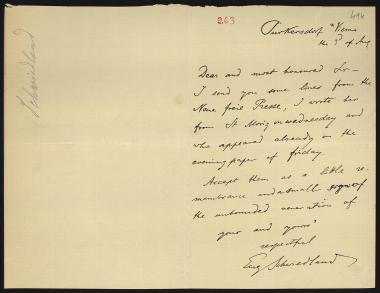 263
494
Schwiedland
Purkersdorf "Vienna
the 3d of Aug.
Dear and most honoured Sir—
I send you some lines from the
Neue freie Presse, I wrote her
from St Moriz on wednesday and
who appeared already on the
evening paper of friday.
Accept them as a little re-
membrance and a small signe of
the unbounded veneration of
your and yours'
respectful
Eug Schwiedland